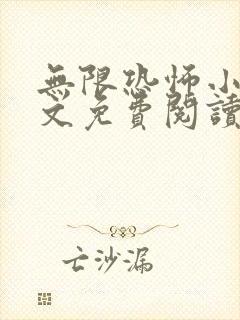 無限恐怖小
文免費閱讀
亡沙漏